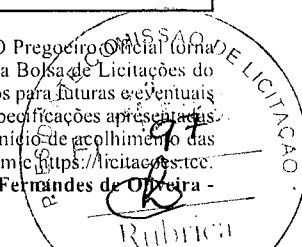 O Pregoeiro Oficial torna
a Bolsa de Licitações do
os para futuras e eventuais
specificações apresentadas
nício de acolhimento das
https://licitacoes.tce.
Fernandes de Oliveira -
COMISSAO DE LICITAÇÃO
97
Rubrica